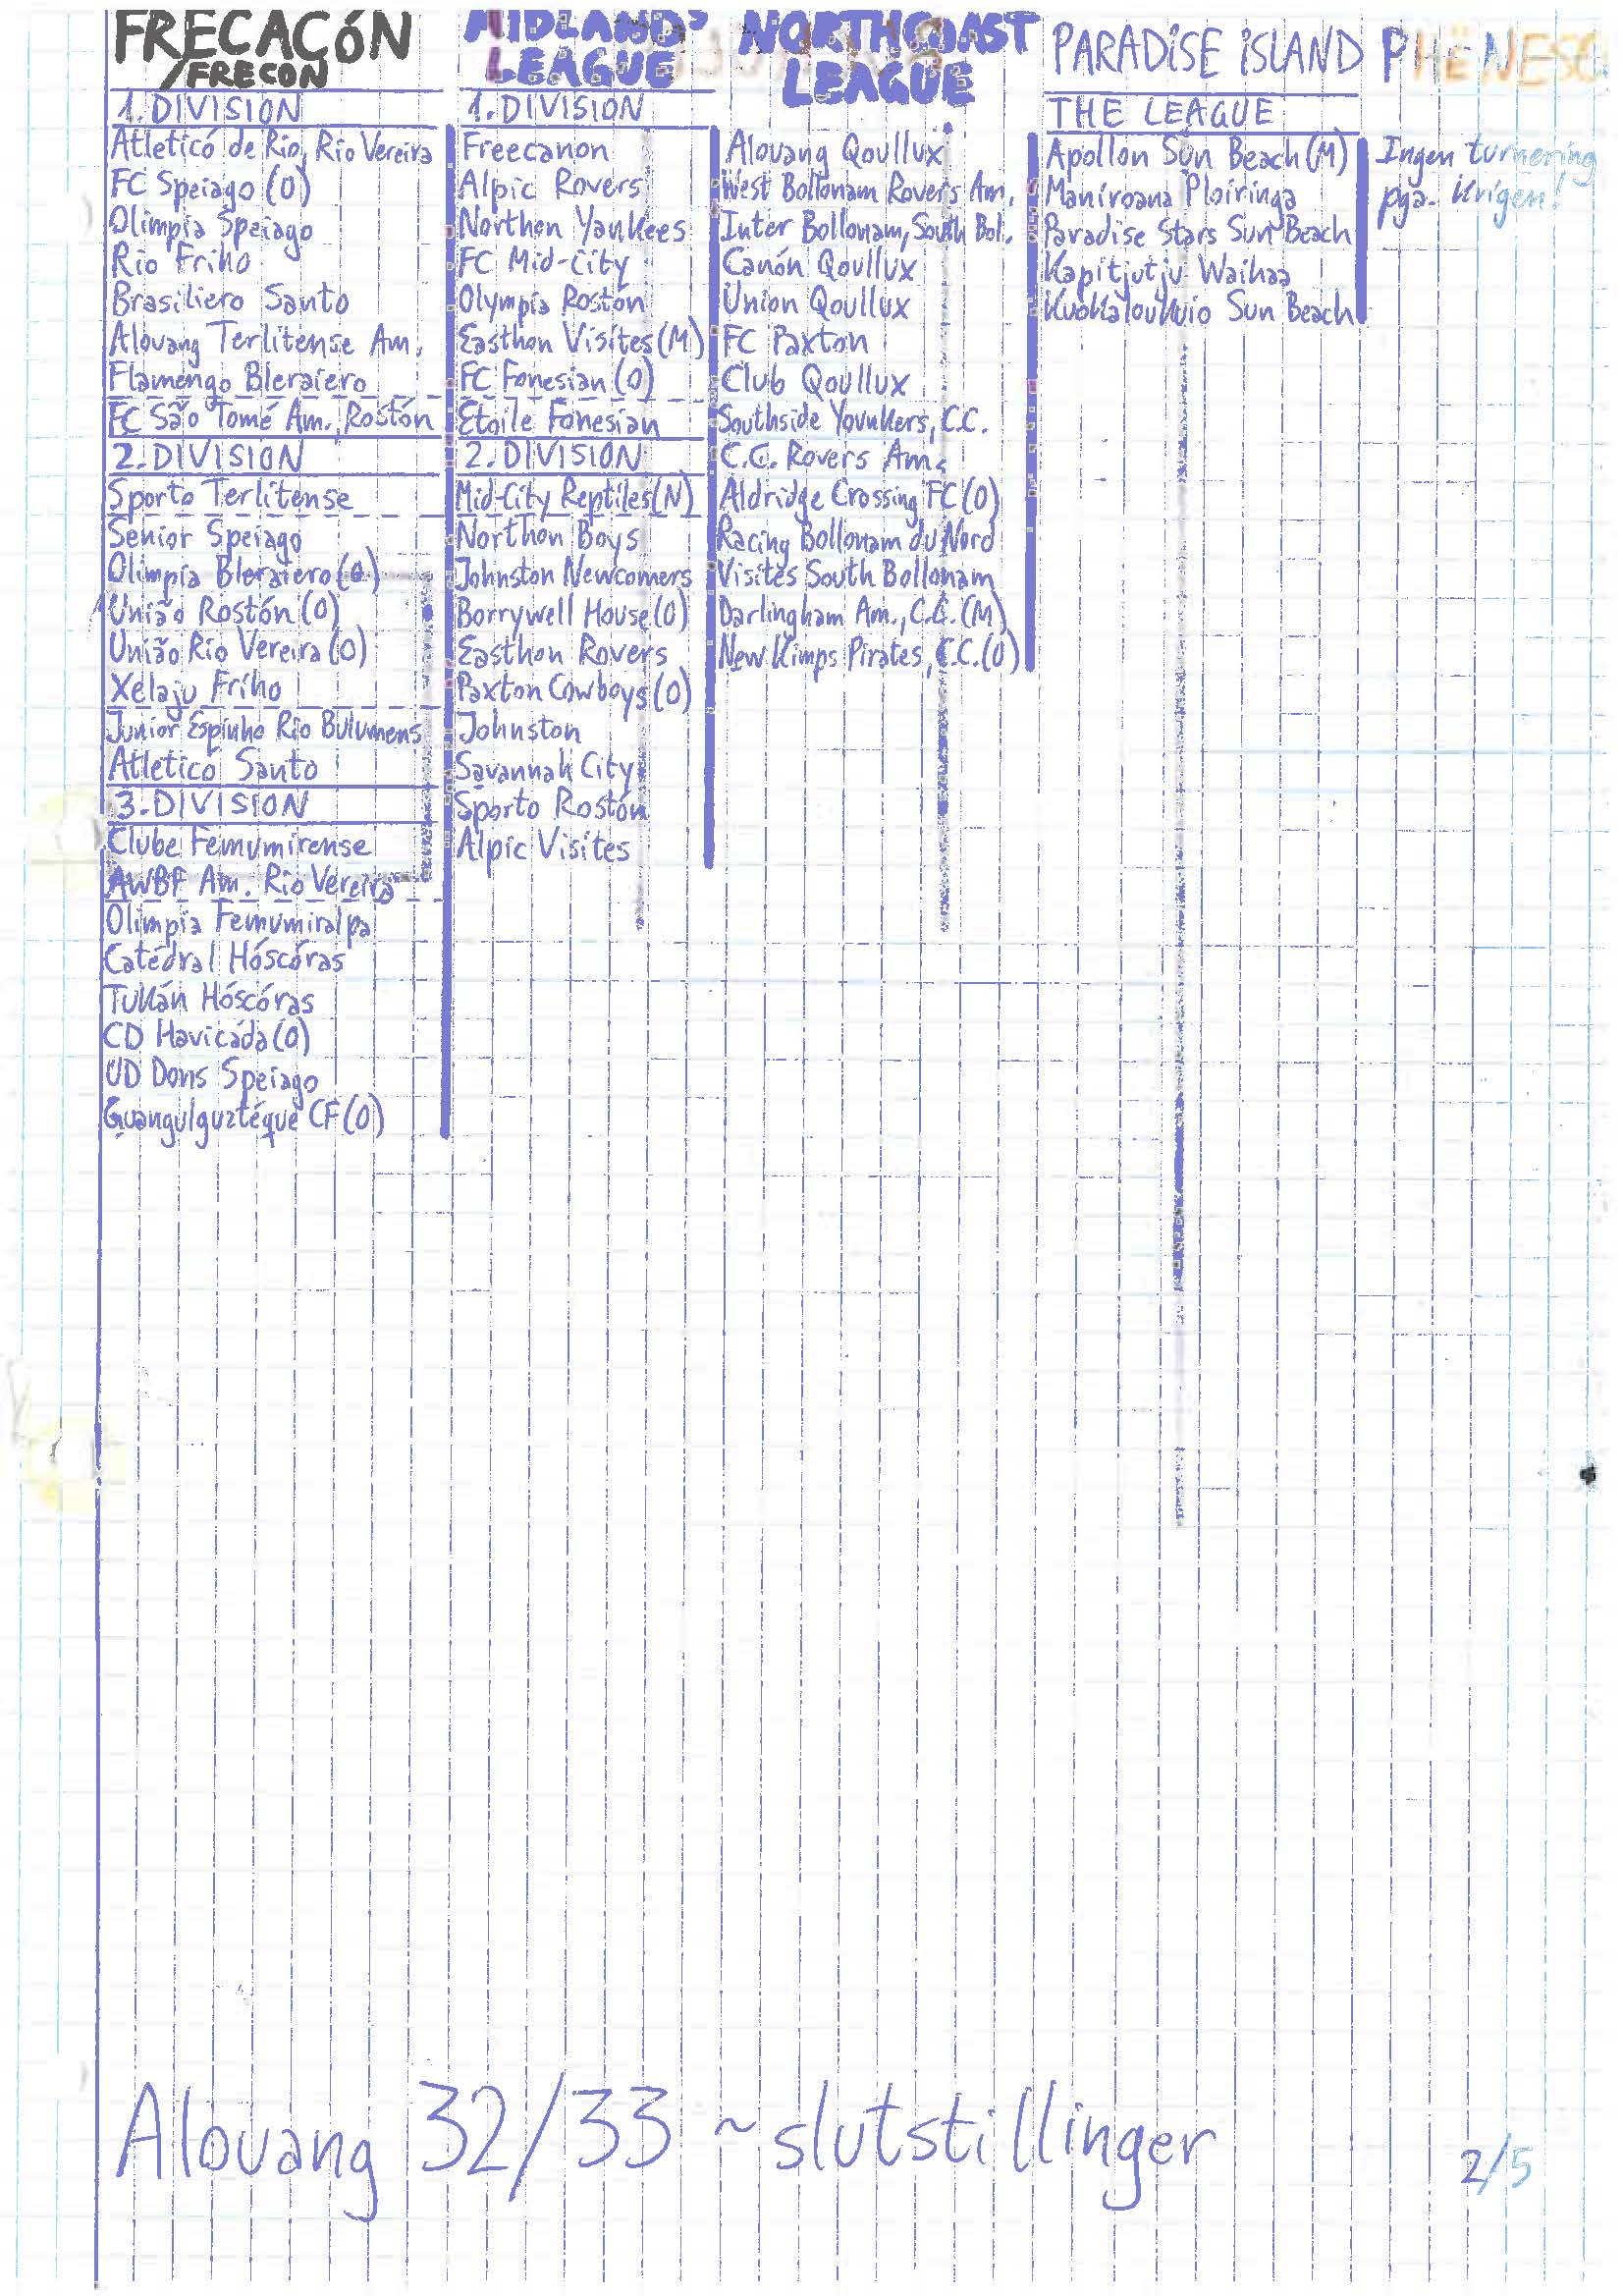 FRECACÓN
/FRECON
1. DIVISION
Atleticó de Rio, Rio Vereira
FC Speiago (O)
Olimpia Speiago
Rio Friho
Brasiliero Santo
Alouang Terlitense Am.
Flamengo Bleraiero
FC São Tomé Am., Rostón
2. DIVISION
Sporto Terlitense
Senior Speiago
Olimpia Bleraiero (O)
União Rostón (O)
União Rio Vereira (O)
Xelaju Friho
Junior Espinho Rio Bulumens
Atletico Santo
3. DIVISION
Clube Femumirense
AWBF Am. Rio Vereira
Olimpia Femumiralpa
Catedral Hóscóras
Tukán Hóscóras
CD Havicáda (O)
UD Dons Speiago
Guangulguztéque CF (O)
MIDLAND'
LEAGUE
1. DIVISION
Freecanon
Alpic Rovers
Northon Yankees
FC Mid-City
Olympia Roston
Easthon Visites (M)
FC Fonesian (O)
Etoile Fonesian
2. DIVISION
Mid-City Reptiles (N)
Northon Boys
Johnston Newcomers
Borrywell House (O)
Easthon Rovers
Paxton Cowboys (O)
Johnston
Savannah City
Sporto Rostón
Alpic Visites
NORTHCOAST
LEAGUE
Alouang Qoullux
West Bollonam Rovers Am.
Inter Bollonam, South Bol.
Canón Qoullux
Union Qoullux
FC Paxton
Club Qoullux
Southside Yovnkers, C.C.
C.C. Rovers Am.
Aldridge Crossing FC (O)
Racing Bollonam du Nord
Visites South Bollonam
Darlingham Am., C.C. (M)
New Kimps Pirates, C.C. (O)
PARADISE ISLAND
THE LEAGUE
Apollon Sun Beach (M)
Maniroana Ploiringa
Paradise Stars Sun Beach
Kapitjutju Waihaa
Kuokaloukuio Sun Beach
PHËNESC
Ingen turnering
pga. Krigen!
Alouang 32/33 ~ slutstillinger
2/5